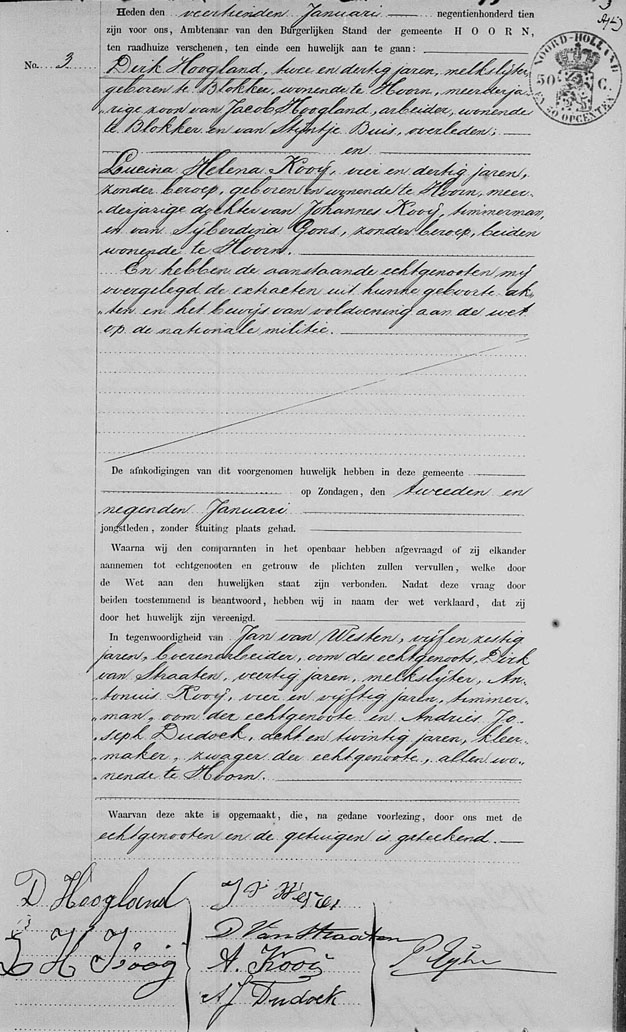 Heden den veertienden Januari negentienhonderd tien
zijn voor ons, Ambtenaar van den Burgerlijken Stand der gemeente HOORN,
ten raadhuize verschenen, ten einde een huwelijk aan te gaan:
No. 3
Dirk Hoogland, twee en dertig jaren, melkslijter,
geboren te Blokker, wonende te Hoorn, meerderja-
„rige zoon van Jacob Hoogland, arbeider, wonende
te Blokker en van Stijntje Buis, overleden;
en
Lucina Helena Kooij, vier en dertig jaren,
zonder beroep, geboren en wonende te Hoorn, meer-
„derjarige dochter van Johannes Kooij, timmerman,
en van Sijberdina Gons, zonder beroep, beiden
wonende te Hoorn.
En hebben de aanstaande echtgenooten mij
overgelegd de extracten uit hunne geboorte ak-
„ten en het bewijs van voldoening aan de wet
op de nationale militie.
NOORD-HOLLAND
50 C.
EN 50 OPCENTEN
De afkondigingen van dit voorgenomen huwelijk hebben in deze gemeente
op Zondagen, den tweeden en
negenden Januari
jongstleden, zonder stuiting plaats gehad.
Waarna wij den comparanten in het openbaar hebben afgevraagd of zij elkander
aannemen tot echtgenooten en getrouw de plichten zullen vervullen, welke door
de Wet aan den huwelijken staat zijn verbonden. Nadat deze vraag door
beiden toestemmend is beantwoord, hebben wij in naam der wet verklaard, dat zij
door het huwelijk zijn vereenigd.
In tegenwoordigheid van Jan van Westen, vijf en zestig
jaren, boerenarbeider, oom des echtgenoots, Dirk
van Straaten, veertig jaren, melkslijter, An-
„tonius Kooij, vier en vijftig jaren, timmer-
„man, oom der echtgenoote en Andries Jo-
„seph Dudock, acht en twintig jaren, kleer-
„maker, zwager der echtgenoote, allen wo-
„nende te Hoorn.
Waarvan deze akte is opgemaakt, die, na gedane voorlezing, door ons met de
echtgenooten en de getuigen is geteekend.
D Hoogland
L H Kooij
J V Westen
D van Straaten
A. Kooij
A J Dudock